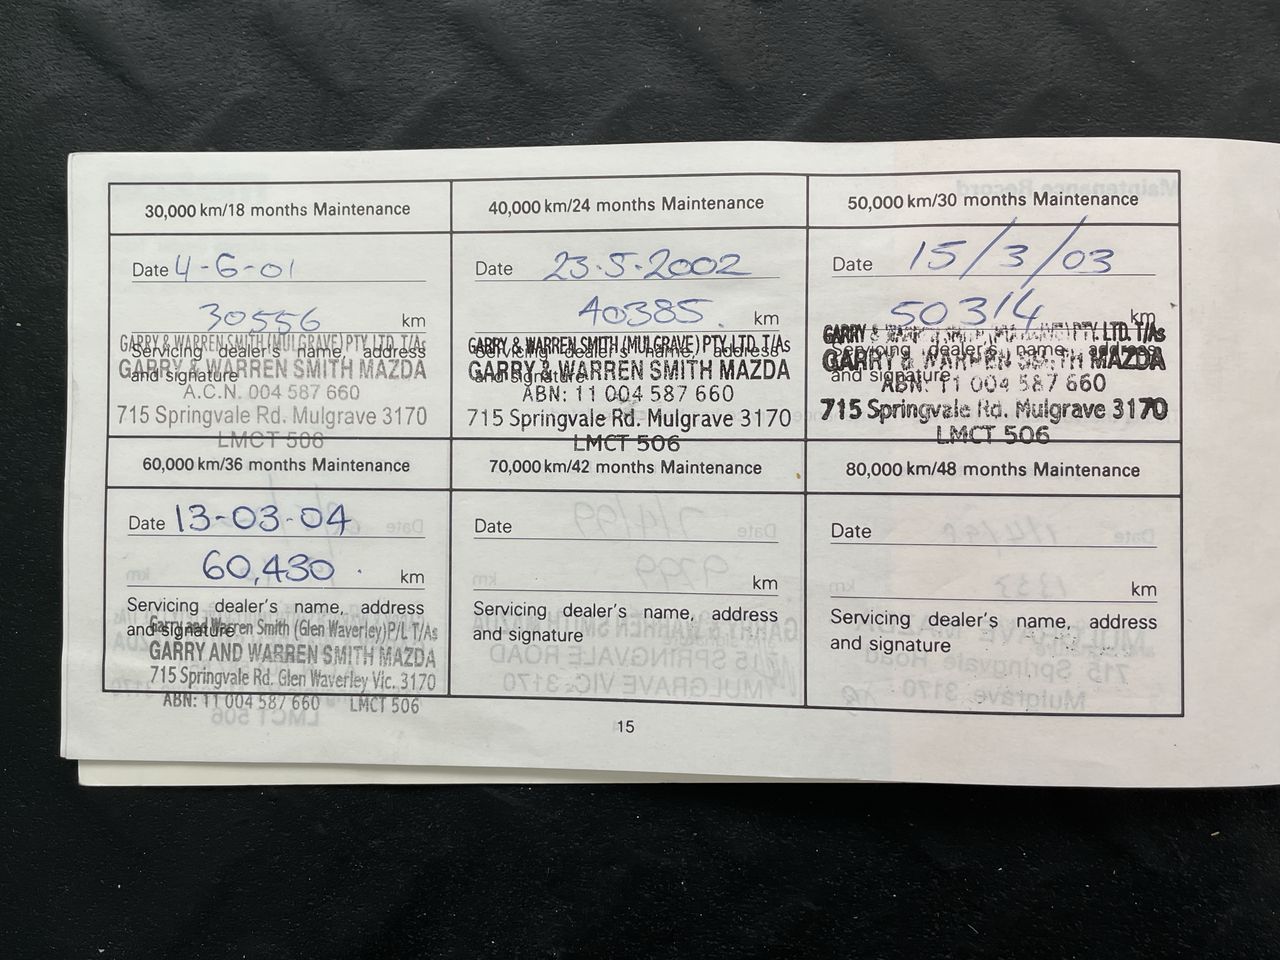 30,000 km/18 months Maintenance
Date 4-6-01
30556 km
Servicing dealer's name, address
and signature
GARRY & WARREN SMITH (MULGRAVE) PTY. LTD. T/As
GARRY & WARREN SMITH MAZDA
A.C.N. 004 587 660
715 Springvale Rd. Mulgrave 3170
LMCT 506
40,000 km/24 months Maintenance
Date 23.5.2002
40385. km
Servicing dealer's name, address
and signature
GARRY & WARREN SMITH (MULGRAVE) PTY. LTD. T/As
GARRY & WARREN SMITH MAZDA
ABN: 11 004 587 660
715 Springvale Rd. Mulgrave 3170
LMCT 506
50,000 km/30 months Maintenance
Date 15/3/03
50314 km
Servicing dealer's name, address
and signature
GARRY & WARREN SMITH (MULGRAVE) PTY. LTD. T/As
GARRY & WARREN SMITH MAZDA
ABN: 11 004 587 660
715 Springvale Rd. Mulgrave 3170
LMCT 506
60,000 km/36 months Maintenance
Date 13-03-04
60,430 . km
Servicing dealer's name, address
and signature
Garry and Warren Smith (Glen Waverley) P/L T/As
GARRY AND WARREN SMITH MAZDA
715 Springvale Rd. Glen Waverley Vic. 3170
ABN: 11 004 587 660 LMCT 506
70,000 km/42 months Maintenance
Date
km
Servicing dealer's name, address
and signature
80,000 km/48 months Maintenance
Date
km
Servicing dealer's name, address
and signature
15